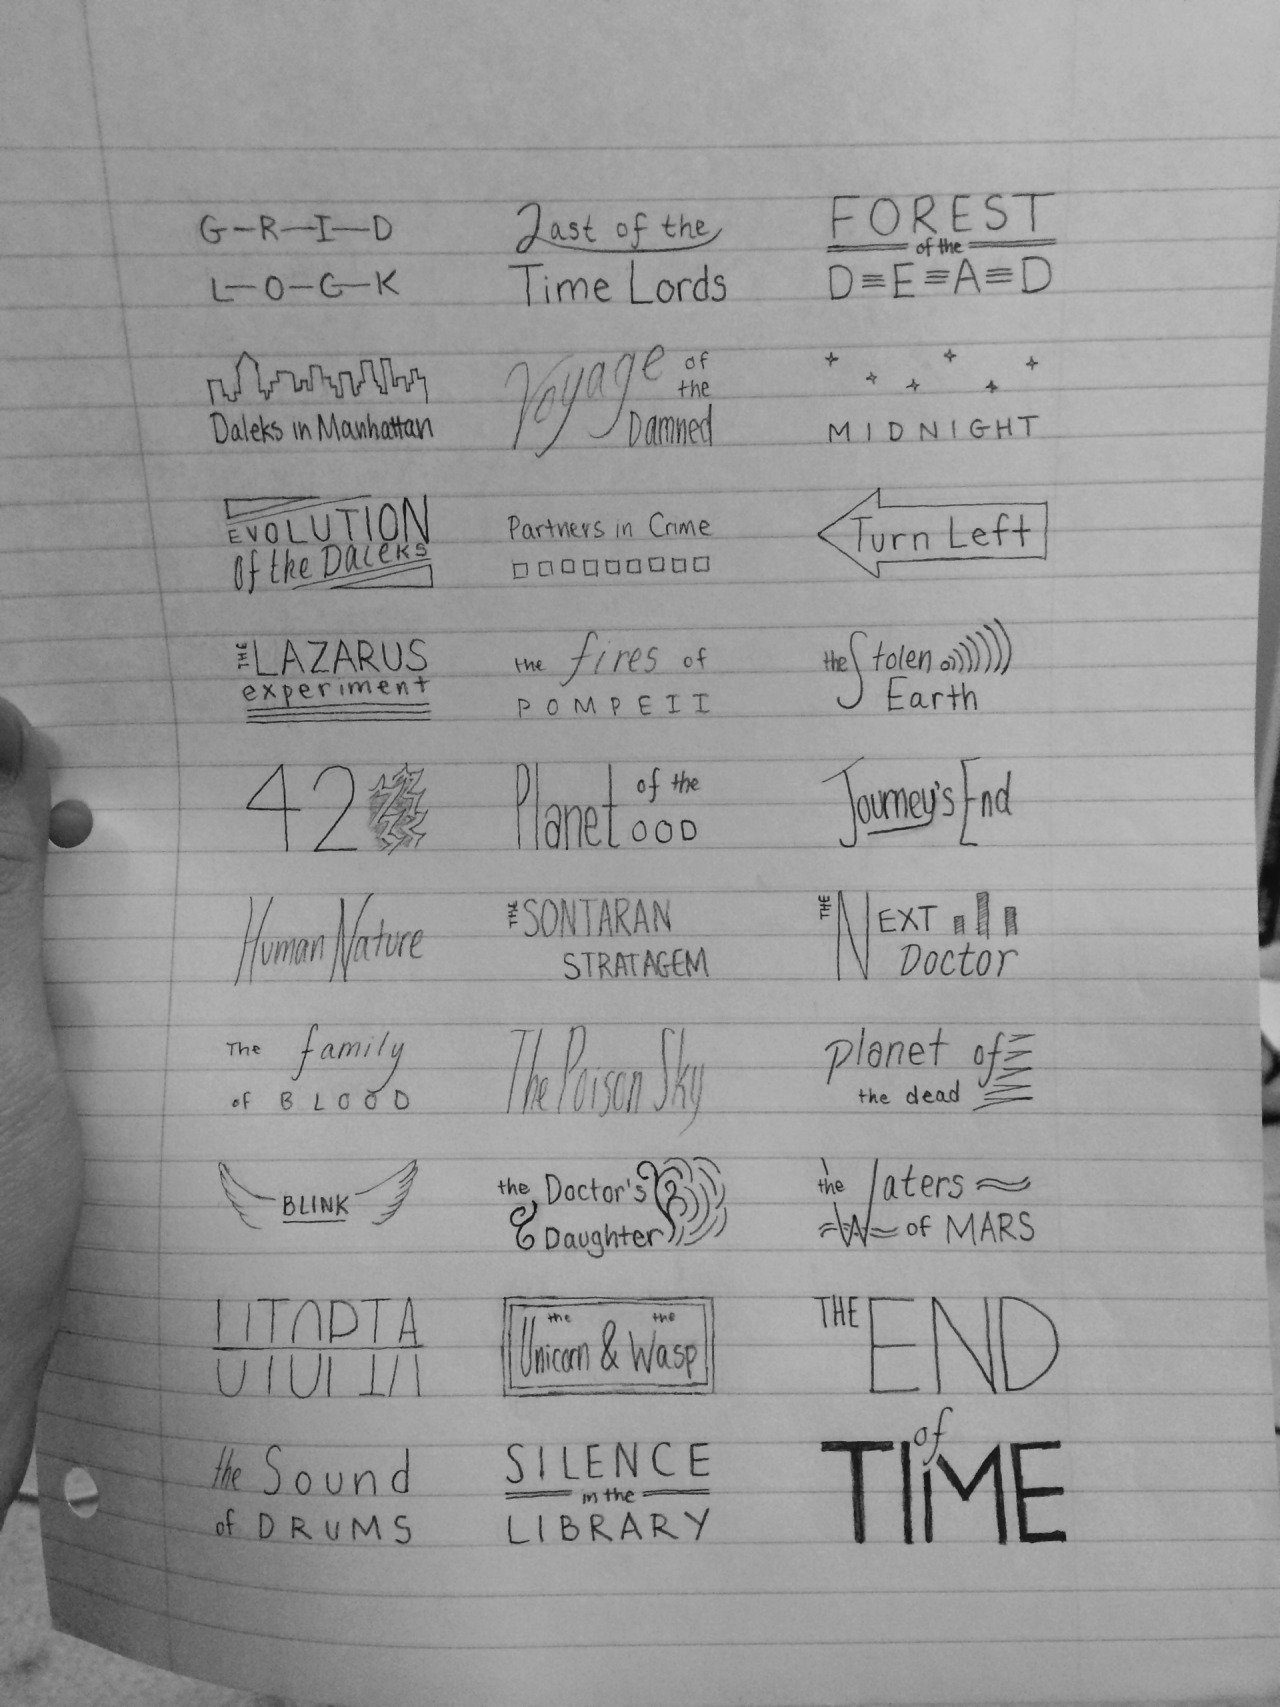 G-R-I-D
L-O-C-K
Daleks in Manhattan
EVOLUTION
of the Daleks
THE LAZARUS
experiment
42
Human Nature
The family
of BLOOD
BLINK
UTOPIA
the Sound
of DRUMS
Last of the
Time Lords
Voyage of
the
Damned
Partners in Crime
the fires of
POMPEII
Planet of the
OOD
THE SONTARAN
STRATAGEM
The Poison Sky
the Doctor's
Daughter
the the
Unicorn & Wasp
SILENCE
in the
LIBRARY
FOREST
of the
D≡E≡A≡D
MIDNIGHT
Turn Left
the Stolen
Earth
Journey's End
THE NEXT
Doctor
planet of
the dead
the Waters
of MARS
THE END
of
TIME